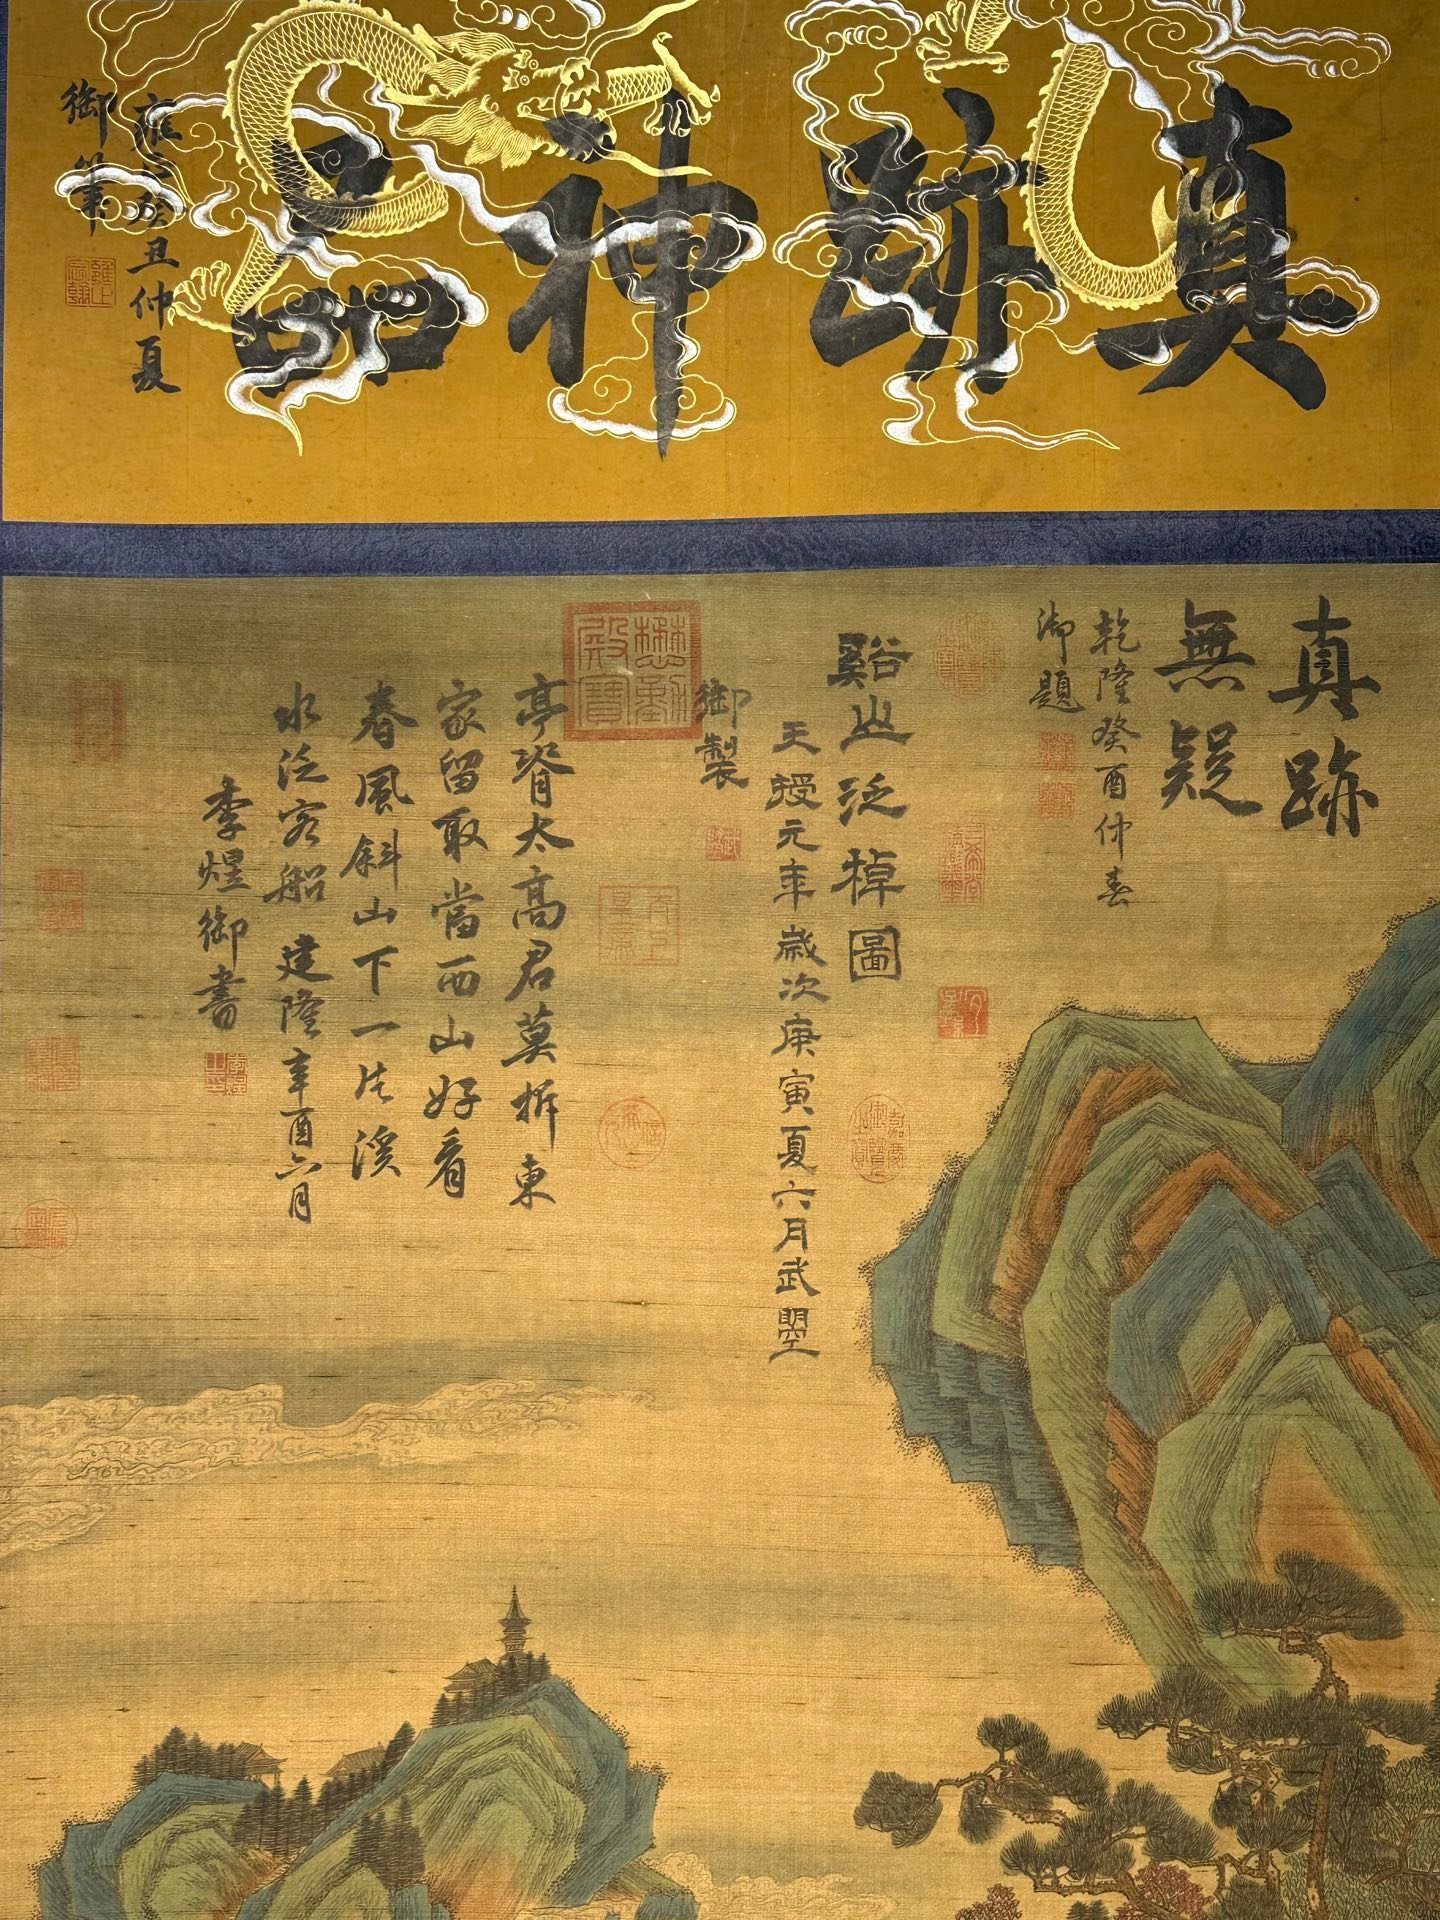 真跡神品
雍正癸丑仲夏
御筆
真跡
無疑
乾隆癸酉仲春
御題
谿山泛棹圖
天授元年歲次庚寅夏六月武曌
御製
亭脊太高君莫拆東
家留取當西山好看
春風斜山下一片溪
水泛客船 建隆辛酉六月
李煜御書
懋勤殿寶